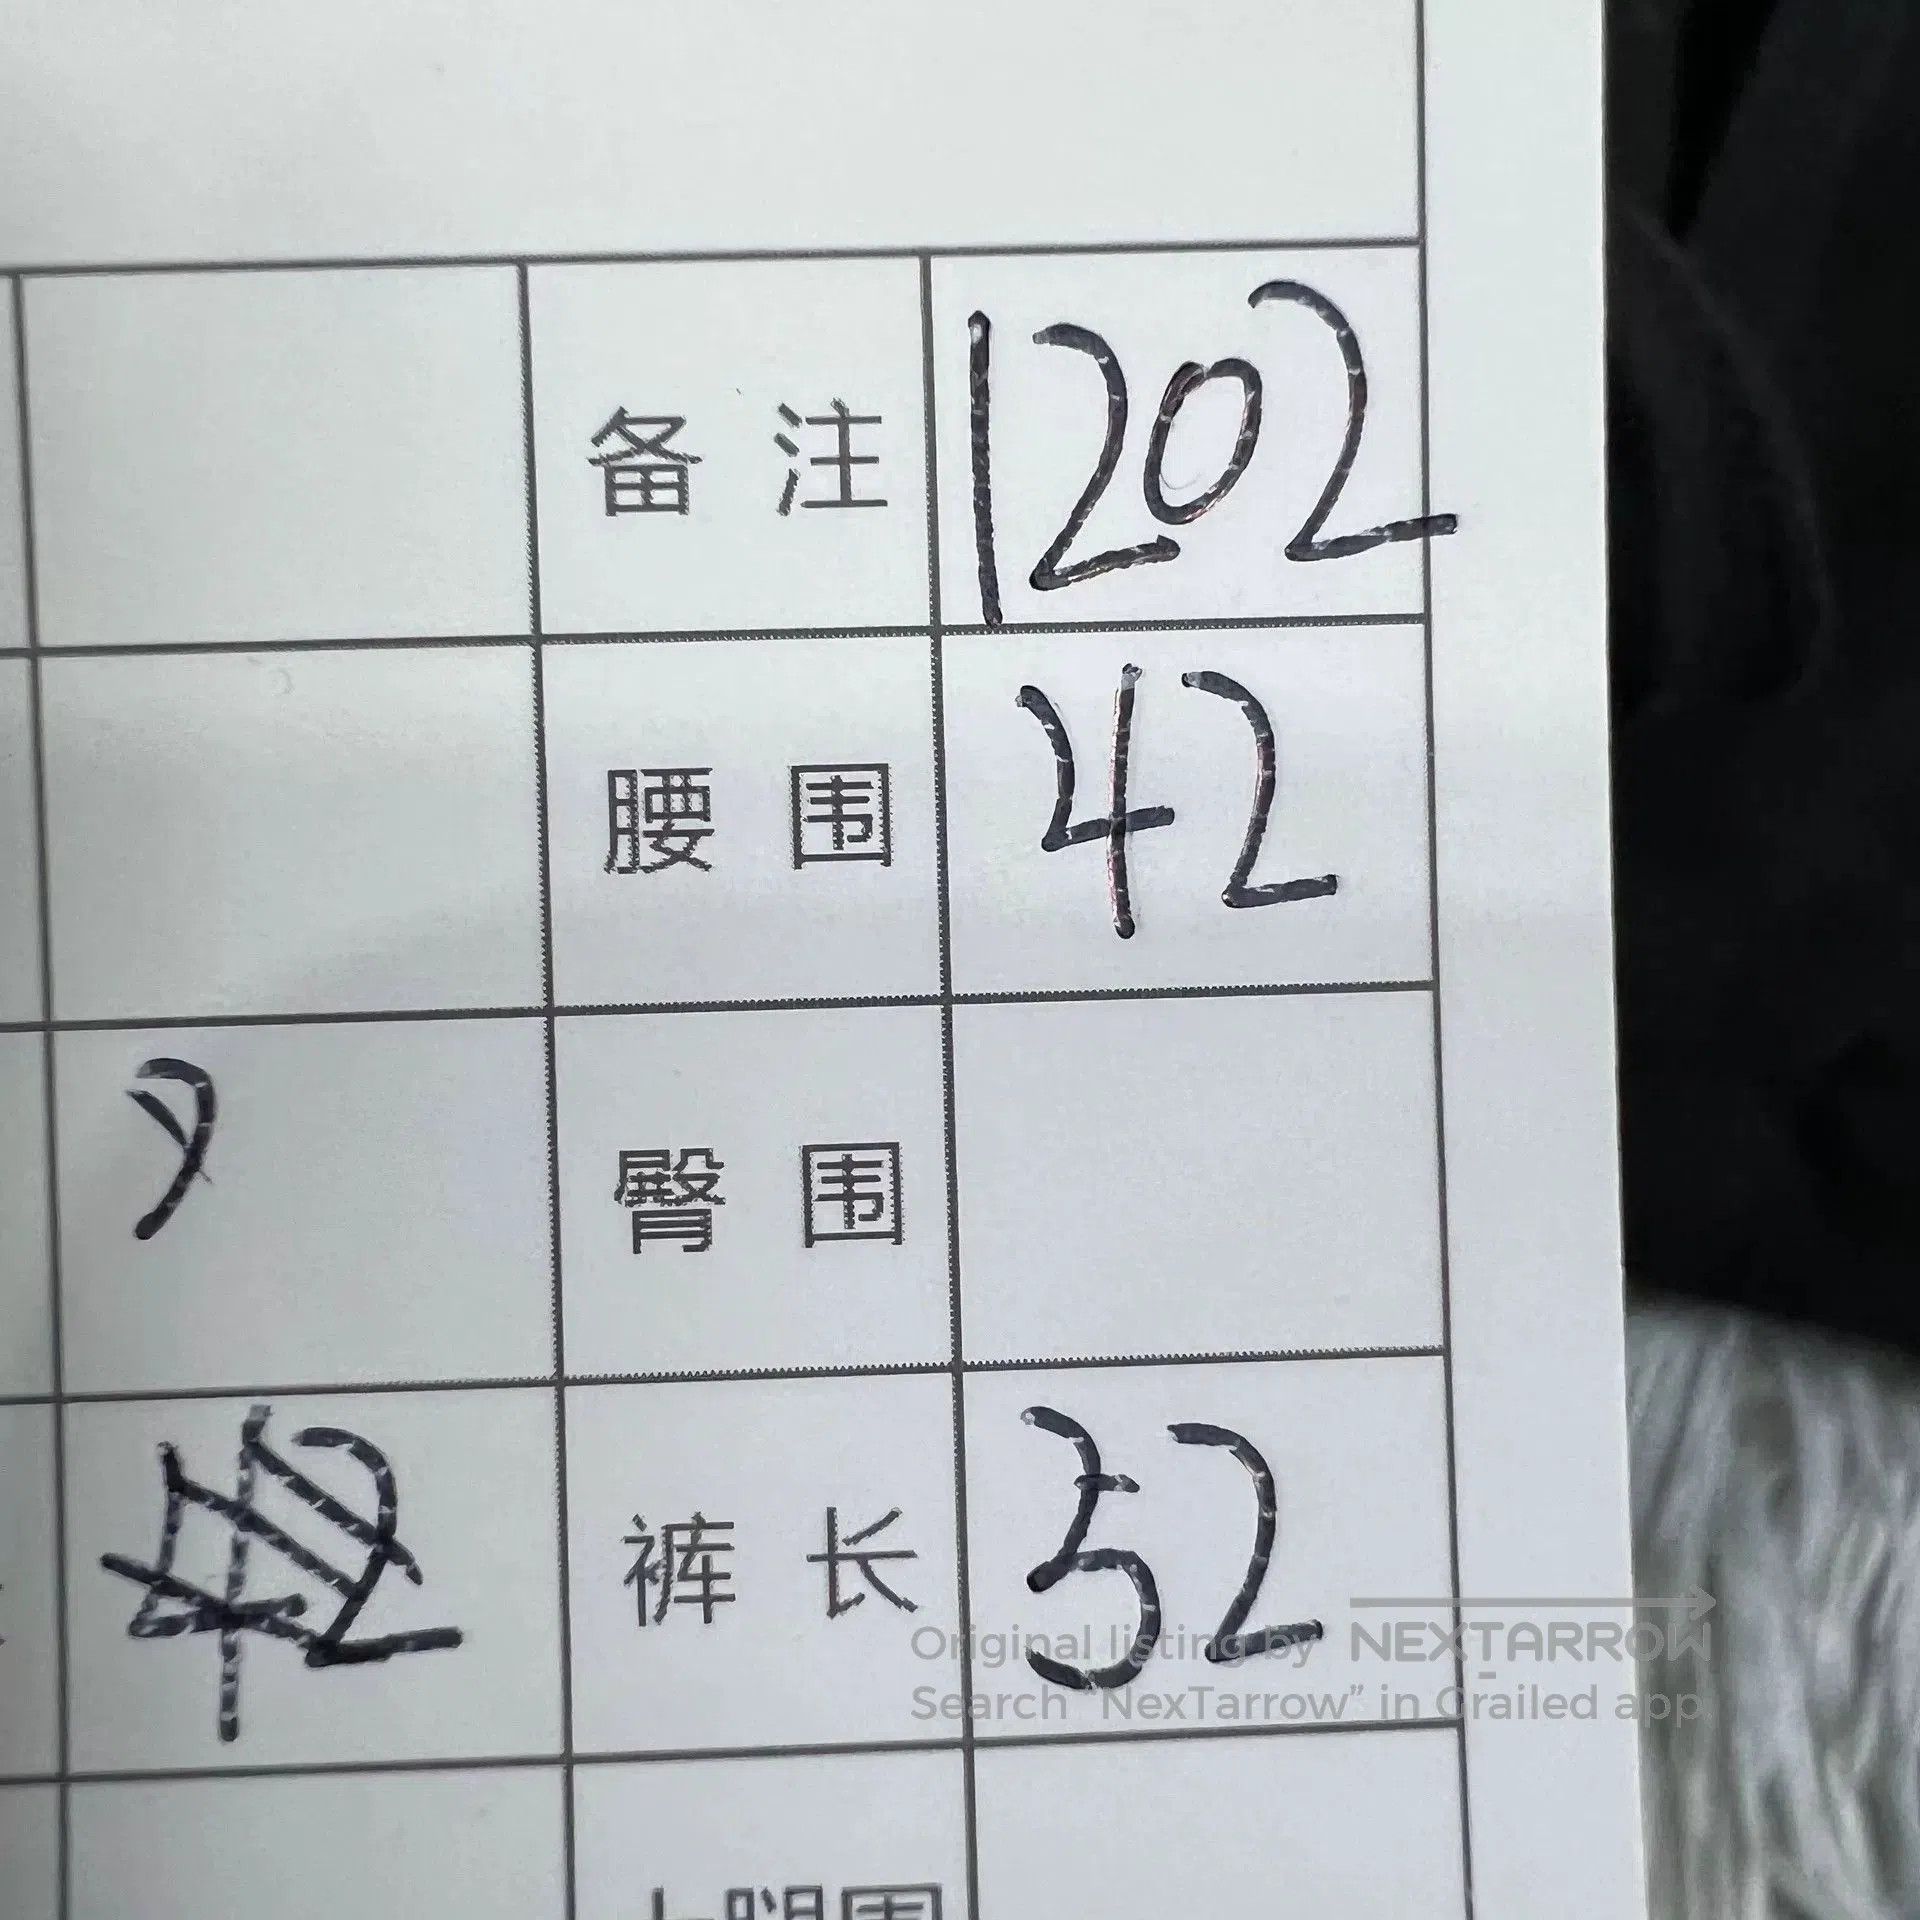 备注 1202
腰围 42
臀围
裤长 32
Original listing by NEXTARROW
Search “NexTarrow” in Grailed app
大腿围